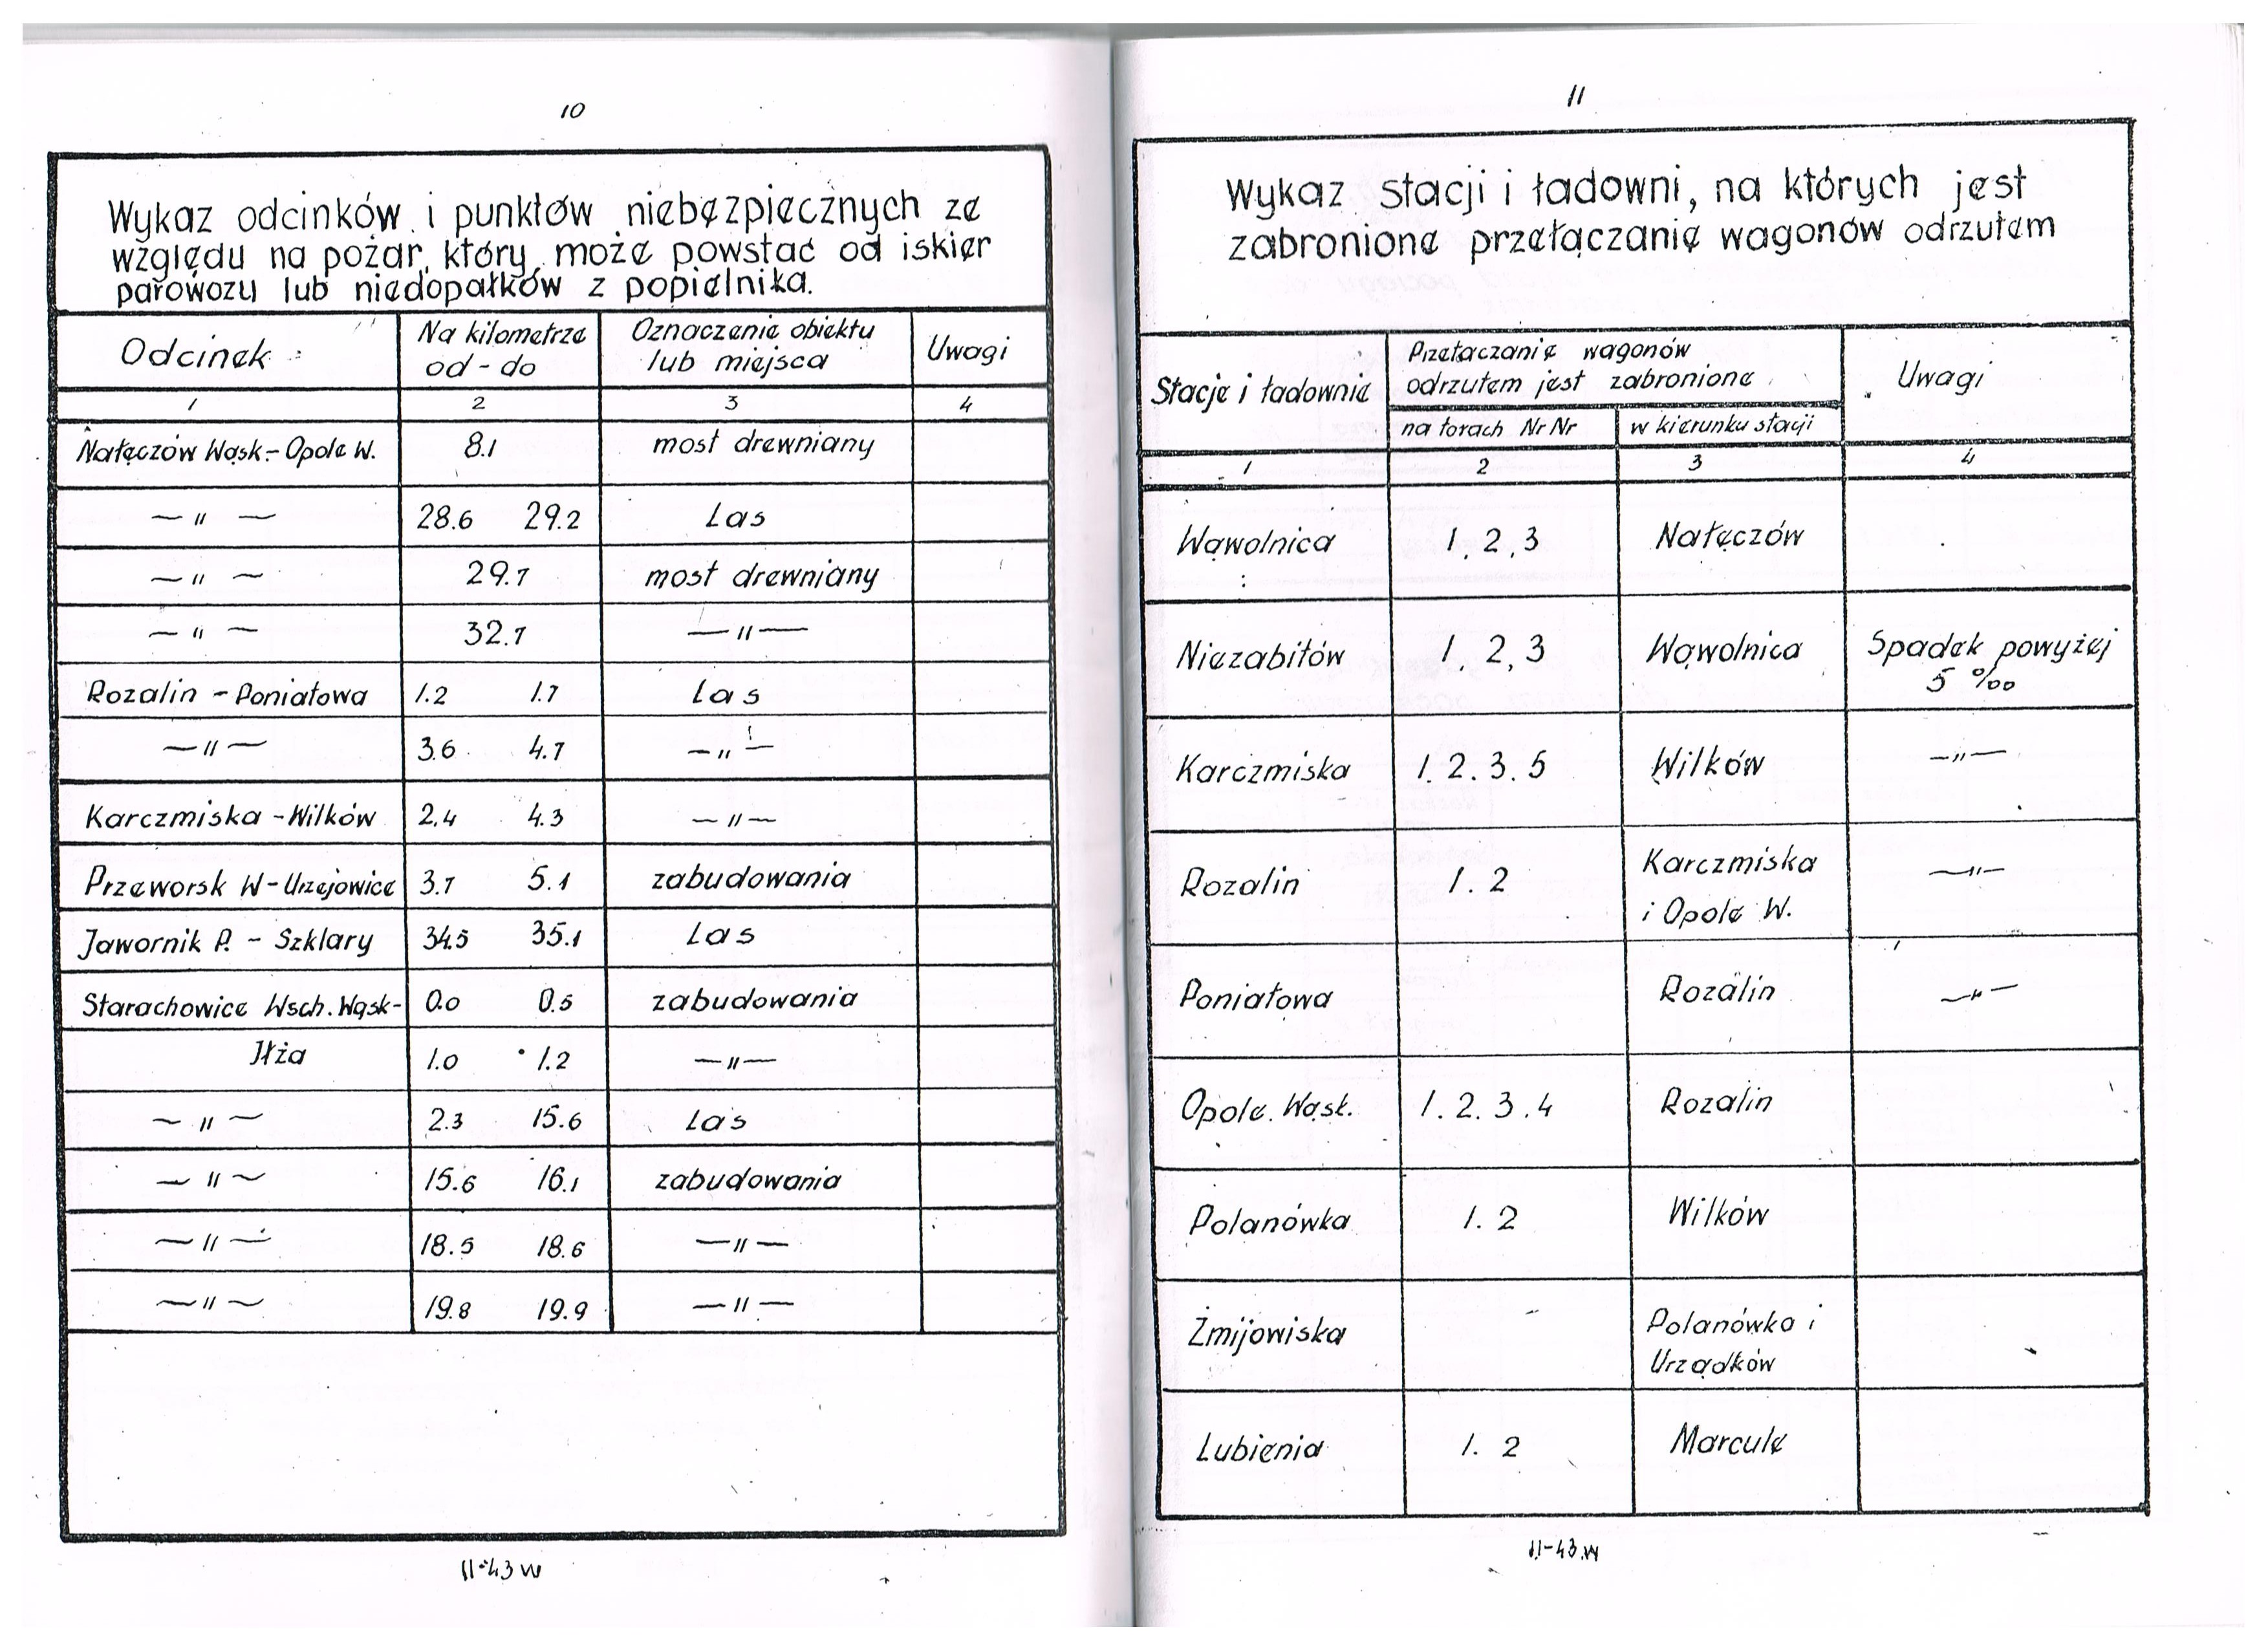 10
Wykaz odcinków i punktów niebezpiecznych ze
względu na pożar, który może powstać od iskier
parowozu lub niedopałków z popielnika.
Odcinek Na kilometrze od - do Oznaczenie obiektu lub miejsca Uwagi
1 2 3 4
Nałęczów Wąsk.- Opole W. 8.1 most drewniany
— " — 28.6 29.2 Las
— " — 29.7 most drewniany
— " — 32.7 — " —
Rozalin - Poniatowa 1.2 1.7 Las
— " — 3.6 4.7 — " —
Karczmiska - Wilków 2.4 4.3 — " —
Przeworsk W - Urzejowice 3.7 5.1 zabudowania
Jawornik P. - Szklary 34.5 35.1 Las
Starachowice Wsch. Wąsk- 0.0 0.5 zabudowania
Iłża 1.0 1.2 — " —
— " — 2.3 15.6 Las
— " — 15.6 16.1 zabudowania
— " — 18.5 18.6 — " —
— " — 19.8 19.9 — " —
11-43 W
11
Wykaz stacji i ładowni, na których jest
zabronione przetaczanie wagonów odrzutem
Stacje i ładownie Przetaczanie wagonów odrzutem jest zabronione Uwagi
na torach Nr Nr w kierunku stacji
1 2 3 4
Wąwolnica 1, 2, 3 Nałęczów
Niezabitów 1, 2, 3 Wąwolnica Spadek powyżej
5 ‰
Karczmiska 1. 2. 3. 5 Wilków — " —
Rozalin 1. 2 Karczmiska — " —
i Opole W.
Poniatowa Rozalin — " —
Opole. Wąsk. 1. 2. 3. 4 Rozalin
Polanówka 1. 2 Wilków
Żmijowiska Polanówka i
Urządków
Lubienia 1. 2 Marcule
11-43.W